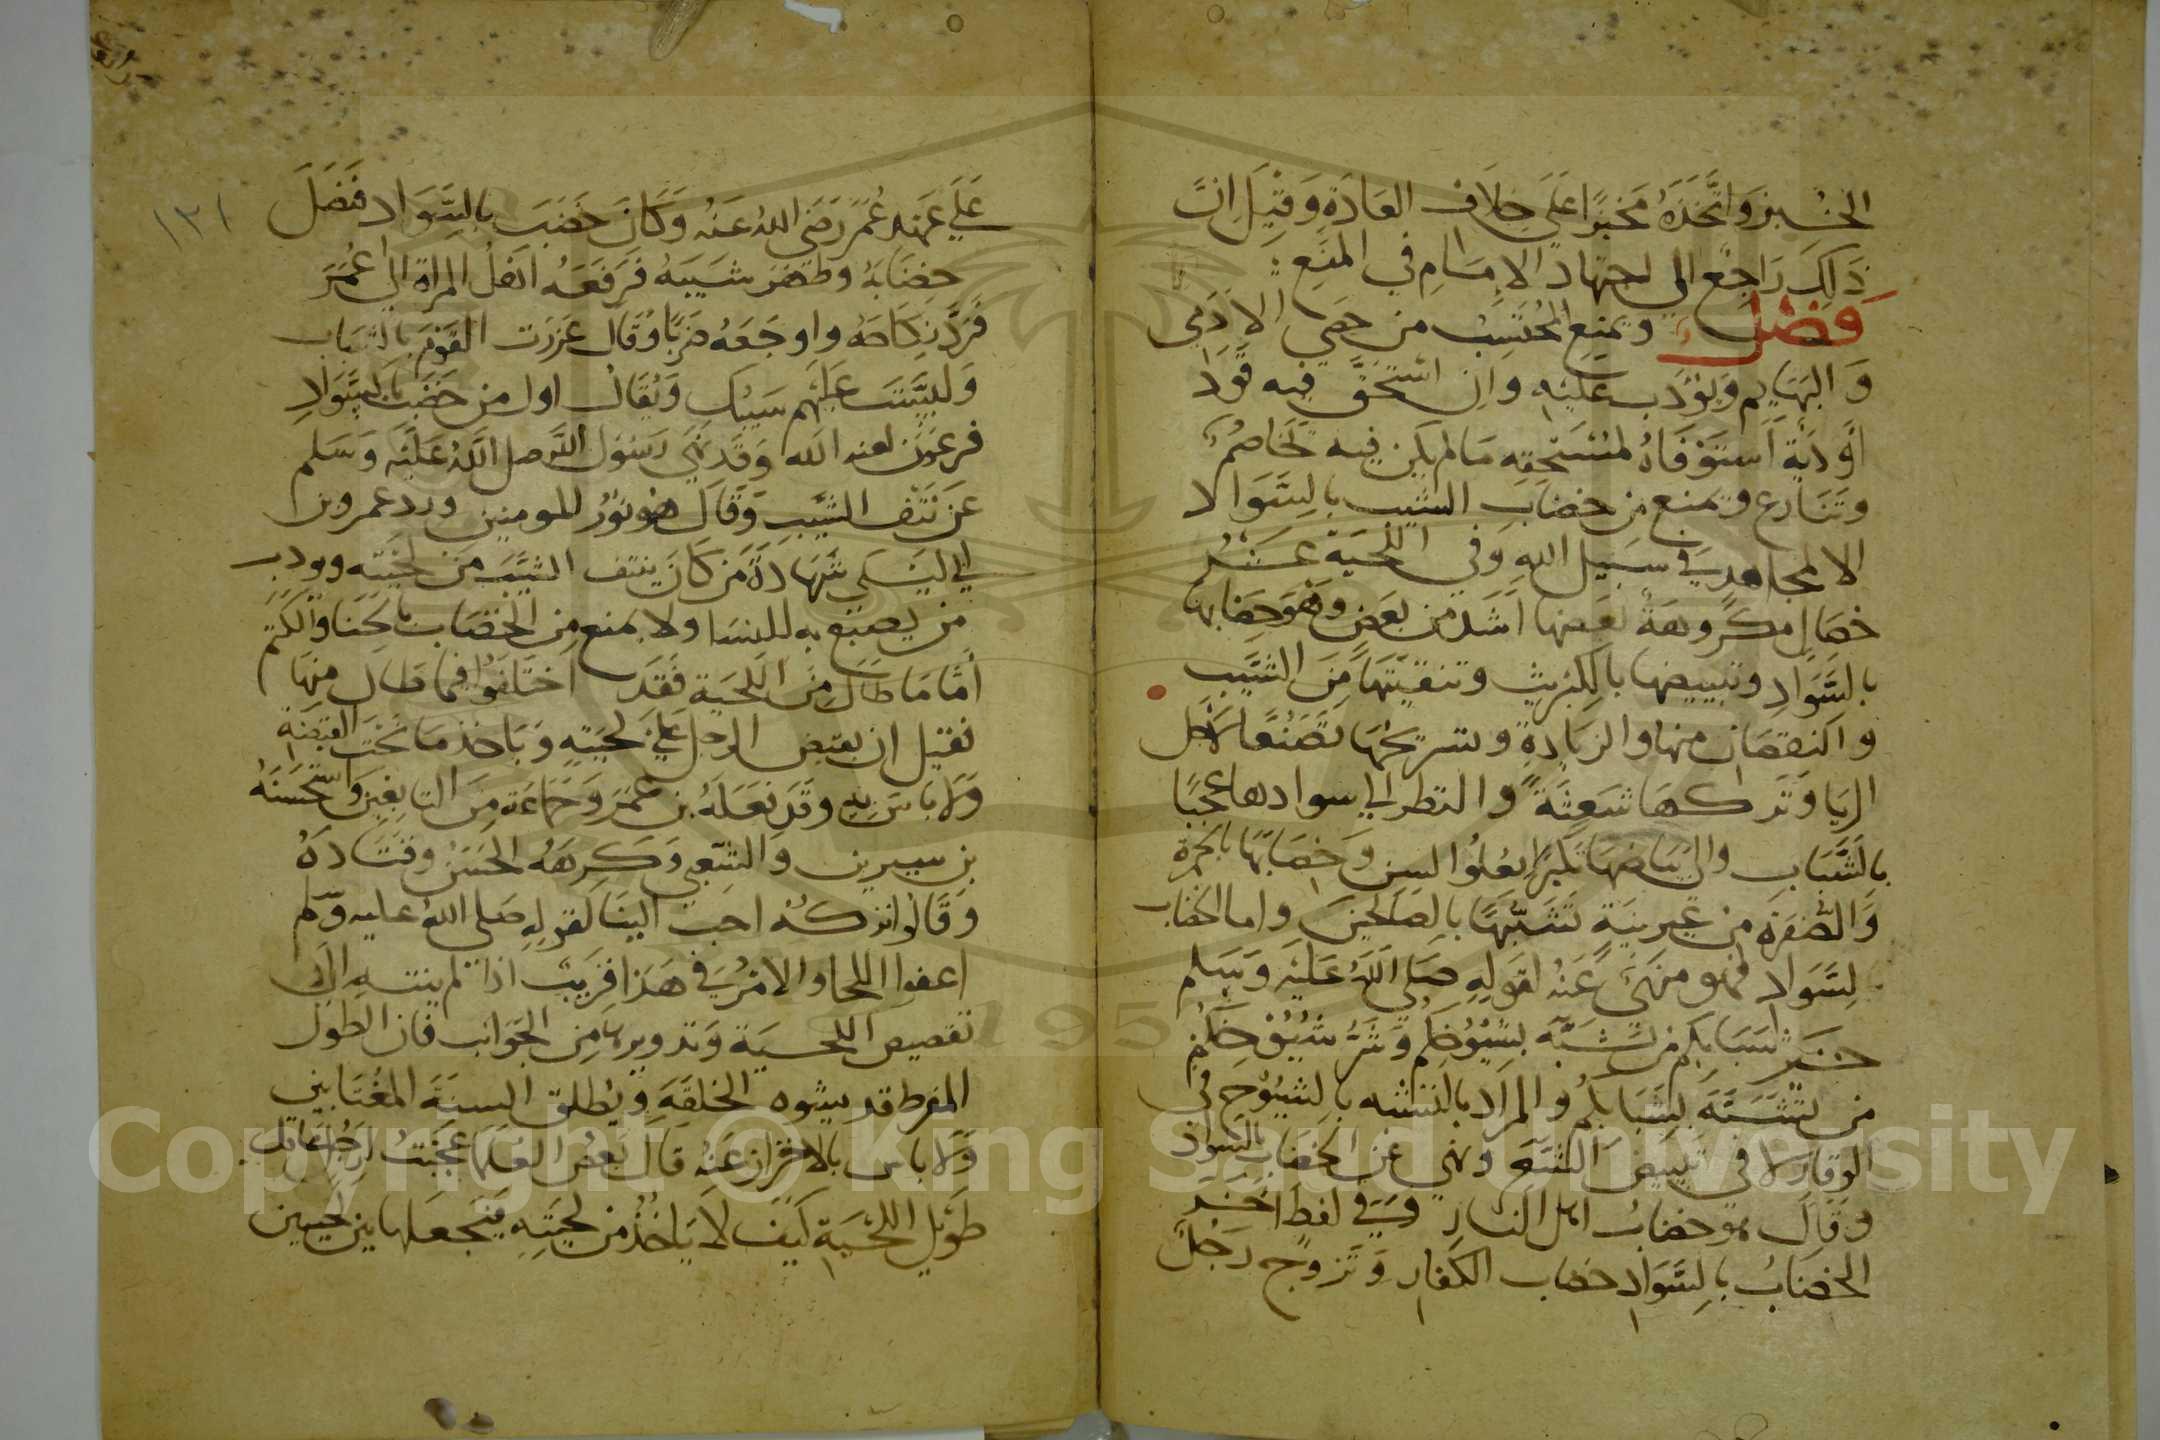 الخبيز واتخذه مخبرا على خلاف العادة وقيل ان
ذلك راجع الي اجتهاد الامام في المنع
فصل ويمنع المحتسب من خصي الادمي
والبهايم ويؤدب عليه وان استحق فيه قودا
أو دية استوفاه لمستحقه ما لم يكن فيه تخاصم
وتنازع ويمنع من خضاب الشيب بالسواد لا
الا لمجاهد في سبيل الله وفي اللحية عشر
خصال مكروهة بعضها اشد من بعض وهو خضابها
بالسواد وتبييضها بالكبريت وتنقيتها من الشيب
والنقصان منها والزيادة وتسريحها تصنعا لاجل
الريا وتركها شعثة والنظر الي سوادها عجبا
بالشباب والي بياضها تكبرا بعلوا السن وخضابها بالحمرة
والصفرة من غير نية تشبها بالصالحين واما الخضاب
لسواد فهو منهي عنه لقوله صلي الله عليه وسلم
خير شبابكم من تشبه بشيوخكم وشر شيوخكم
من تشبه بشبابكم والمراد بالتشبه بالشيوخ في
الوقار لا في تبييض الشعر ونهي عن الخضاب بالسواد
وقال هو خضاب اهل النار وفي لفظ اخر
الخضاب بالسواد خضاب الكفار وتزوج رجل
١٣١
علي عهد عمر رضي الله عنه وكان خضب بالسواد فنصل
خضابه وظهر شيبه فرفعه اهل المراة الى عمر
فرد نكاحه واوجعه ضربا وقال عزرت القوم بالشباب
ولبست عليهم شيبك ويقال اول من خضب بالسواد
فرعون لعنه الله وقد نهي رسول الله صلى الله عليه وسلم
عن نتف الشيب وقال هو نور للمومنين ورد عمر وبن
ابي ليلي شهادة من كان ينتف الشيب من لحيته ويودب
من يصبغ به للنسا ولا يمنع من الخضاب بالحنا والكتم
أما ما طال من اللحية فقد اختلفوا فيما طال منها
فقيل ان يقبض الرجل علي لحيته وياخذ ما تحت القبضة
ولا باس به وقد فعله بن عمر وجماعة من التابعين واستحسنه
بن سيرين والشعبي وكرهه الحسن وقتادة
وقالوا تركه احب الينا لقوله صلى الله عليه وسلم
اعفوا اللحا والامر في هذا قريب اذا لم ينته الى
تقصيص اللحية وتدويرها من الجوانب فان الطول
المفرط قد يشوه الخلقة ويطلق السنة المغتابين
ولا باس بالاحتراز عنه قال بعض العلما عجبت لرجل عاقل
طويل اللحية كيف لا ياخذ من لحيته فيجعلها بين لحيين
Copyright © King Saud University
195